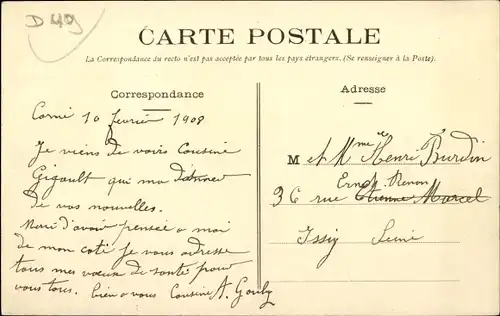 D 49
CARTE POSTALE
La Correspondance du recto n'est pas acceptée par tous les pays étrangers. (Se renseigner à la Poste).
Correspondance
Adresse
10 février 1908
Je viens de voire Cousine
Gigault qui ma donner
de vos nouvelles.
Merci d'avoir pensée a moi
de mon coté je vous adresse
tous mes vœux de santé pour
vous tous. bien a vous Cousine A.
M et Mme Henri Burdin
Ernest Renan
36 rue Etienne Marcel
Issy Seine